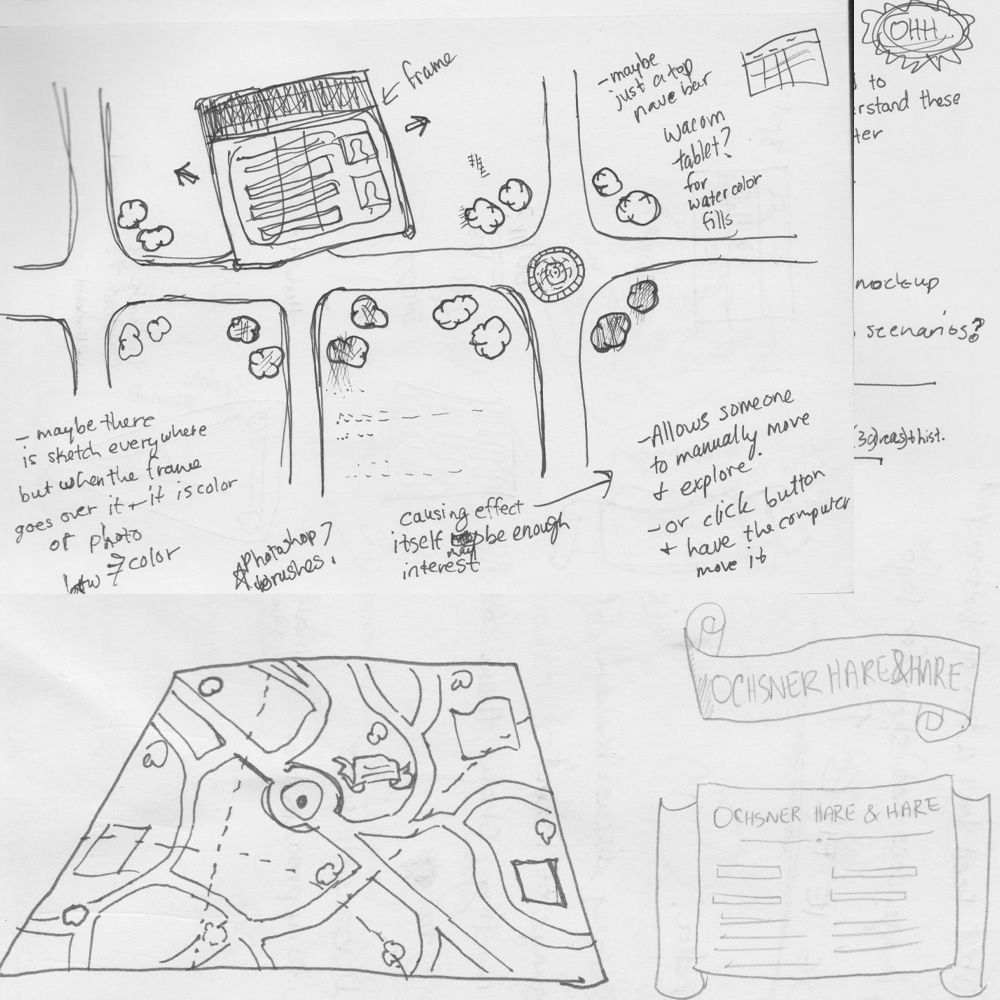 frame
- maybe
just a top
nave bar
wacom
tablet?
for
watercolor
fills
OHH...
to
erstand these
ter
mockup
scenarios?
- maybe there
is sketch everywhere
but when the frame
goes over it it is color
or photo
btw color
Photoshop?
brushes!
causing effect
itself may be enough
interest
- Allows someone
to manually move
+ explore.
- or click button
+ have the computer
move it
OCHSNER HARE & HARE
OCHSNER HARE & HARE